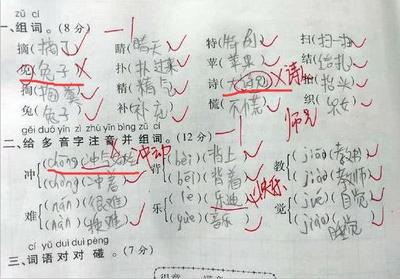 zǔ cí
一、组词。(8分)
摘(摘了) 睛(晴天) 特(特别) 扫(扫一扫)
兔(兔子) 扑(扑过来) 苹(苹果) 结(结扎)
掏(掏粪) 精(精气) 诗(古诗) 诗 抬(抬头)
兔(兔子) 补(补充) 慌(不慌) 织(织女)
gěi duō yīn zì zhù yīn bìng zǔ cí
二、给多音字注音并组词。(12分)
冲 (chōng)(冲与) 冲动 背 (bèi)(背上) 教 (jiāo)(教书)
(chòng)(冲着) (bēi)(背着) (jiào)(教师)
难 (nán)(很难) 乐 (lè)(乐迪) 快乐 觉 (jué)(自觉)
(nàn)(难) (yuè)(音乐) (jiào)(睡觉)
cí yǔ duì duì pèng
三、词语对对碰。(7分)